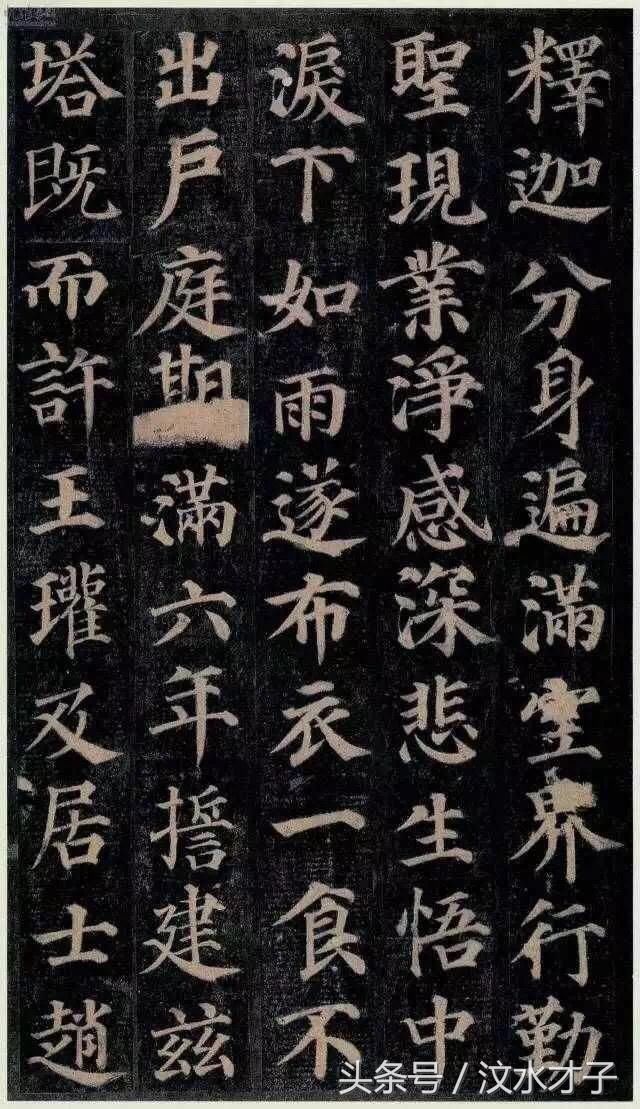 釋迦分身遍滿空界行勤
聖現業淨感深悲生悟中
淚下如雨遂布衣一食不
出戶庭期滿六年誓建茲
塔既而許王瓘及居士趙
头条号 / 汶水才子